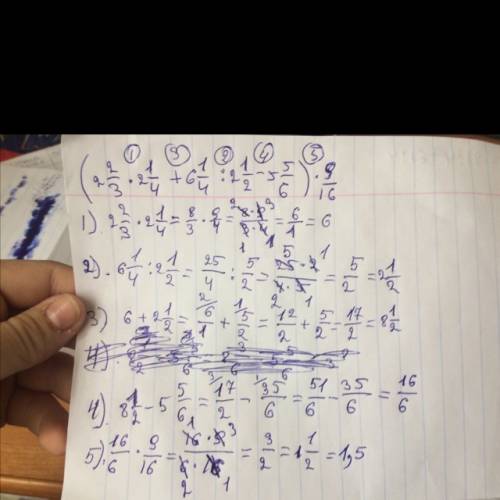 ① ③ ② ④ ⑤
(2 2/3 · 2 1/4 + 6 1/4 : 2 1/2 - 5 5/6) · 9/16
1) 2 2/3 · 2 1/4 = 8/3 · 9/4 = 8·9/3·4 = 6/1 = 6
2). 6 1/4 : 2 1/2 = 25/4 : 5/2 = 25·2/4·5 = 5/2 = 2 1/2
3) 6 + 2 1/2 = 6/1 + 5/2 = 12/2 + 5/2 = 17/2 = 8 1/2
4). 8 1/2 - 5 5/6 = 17/2 - 35/6 = 51/6 - 35/6 = 16/6
5). 16/6 · 9/16 = 16·9/6·16 = 3/2 = 1 1/2 = 1,5